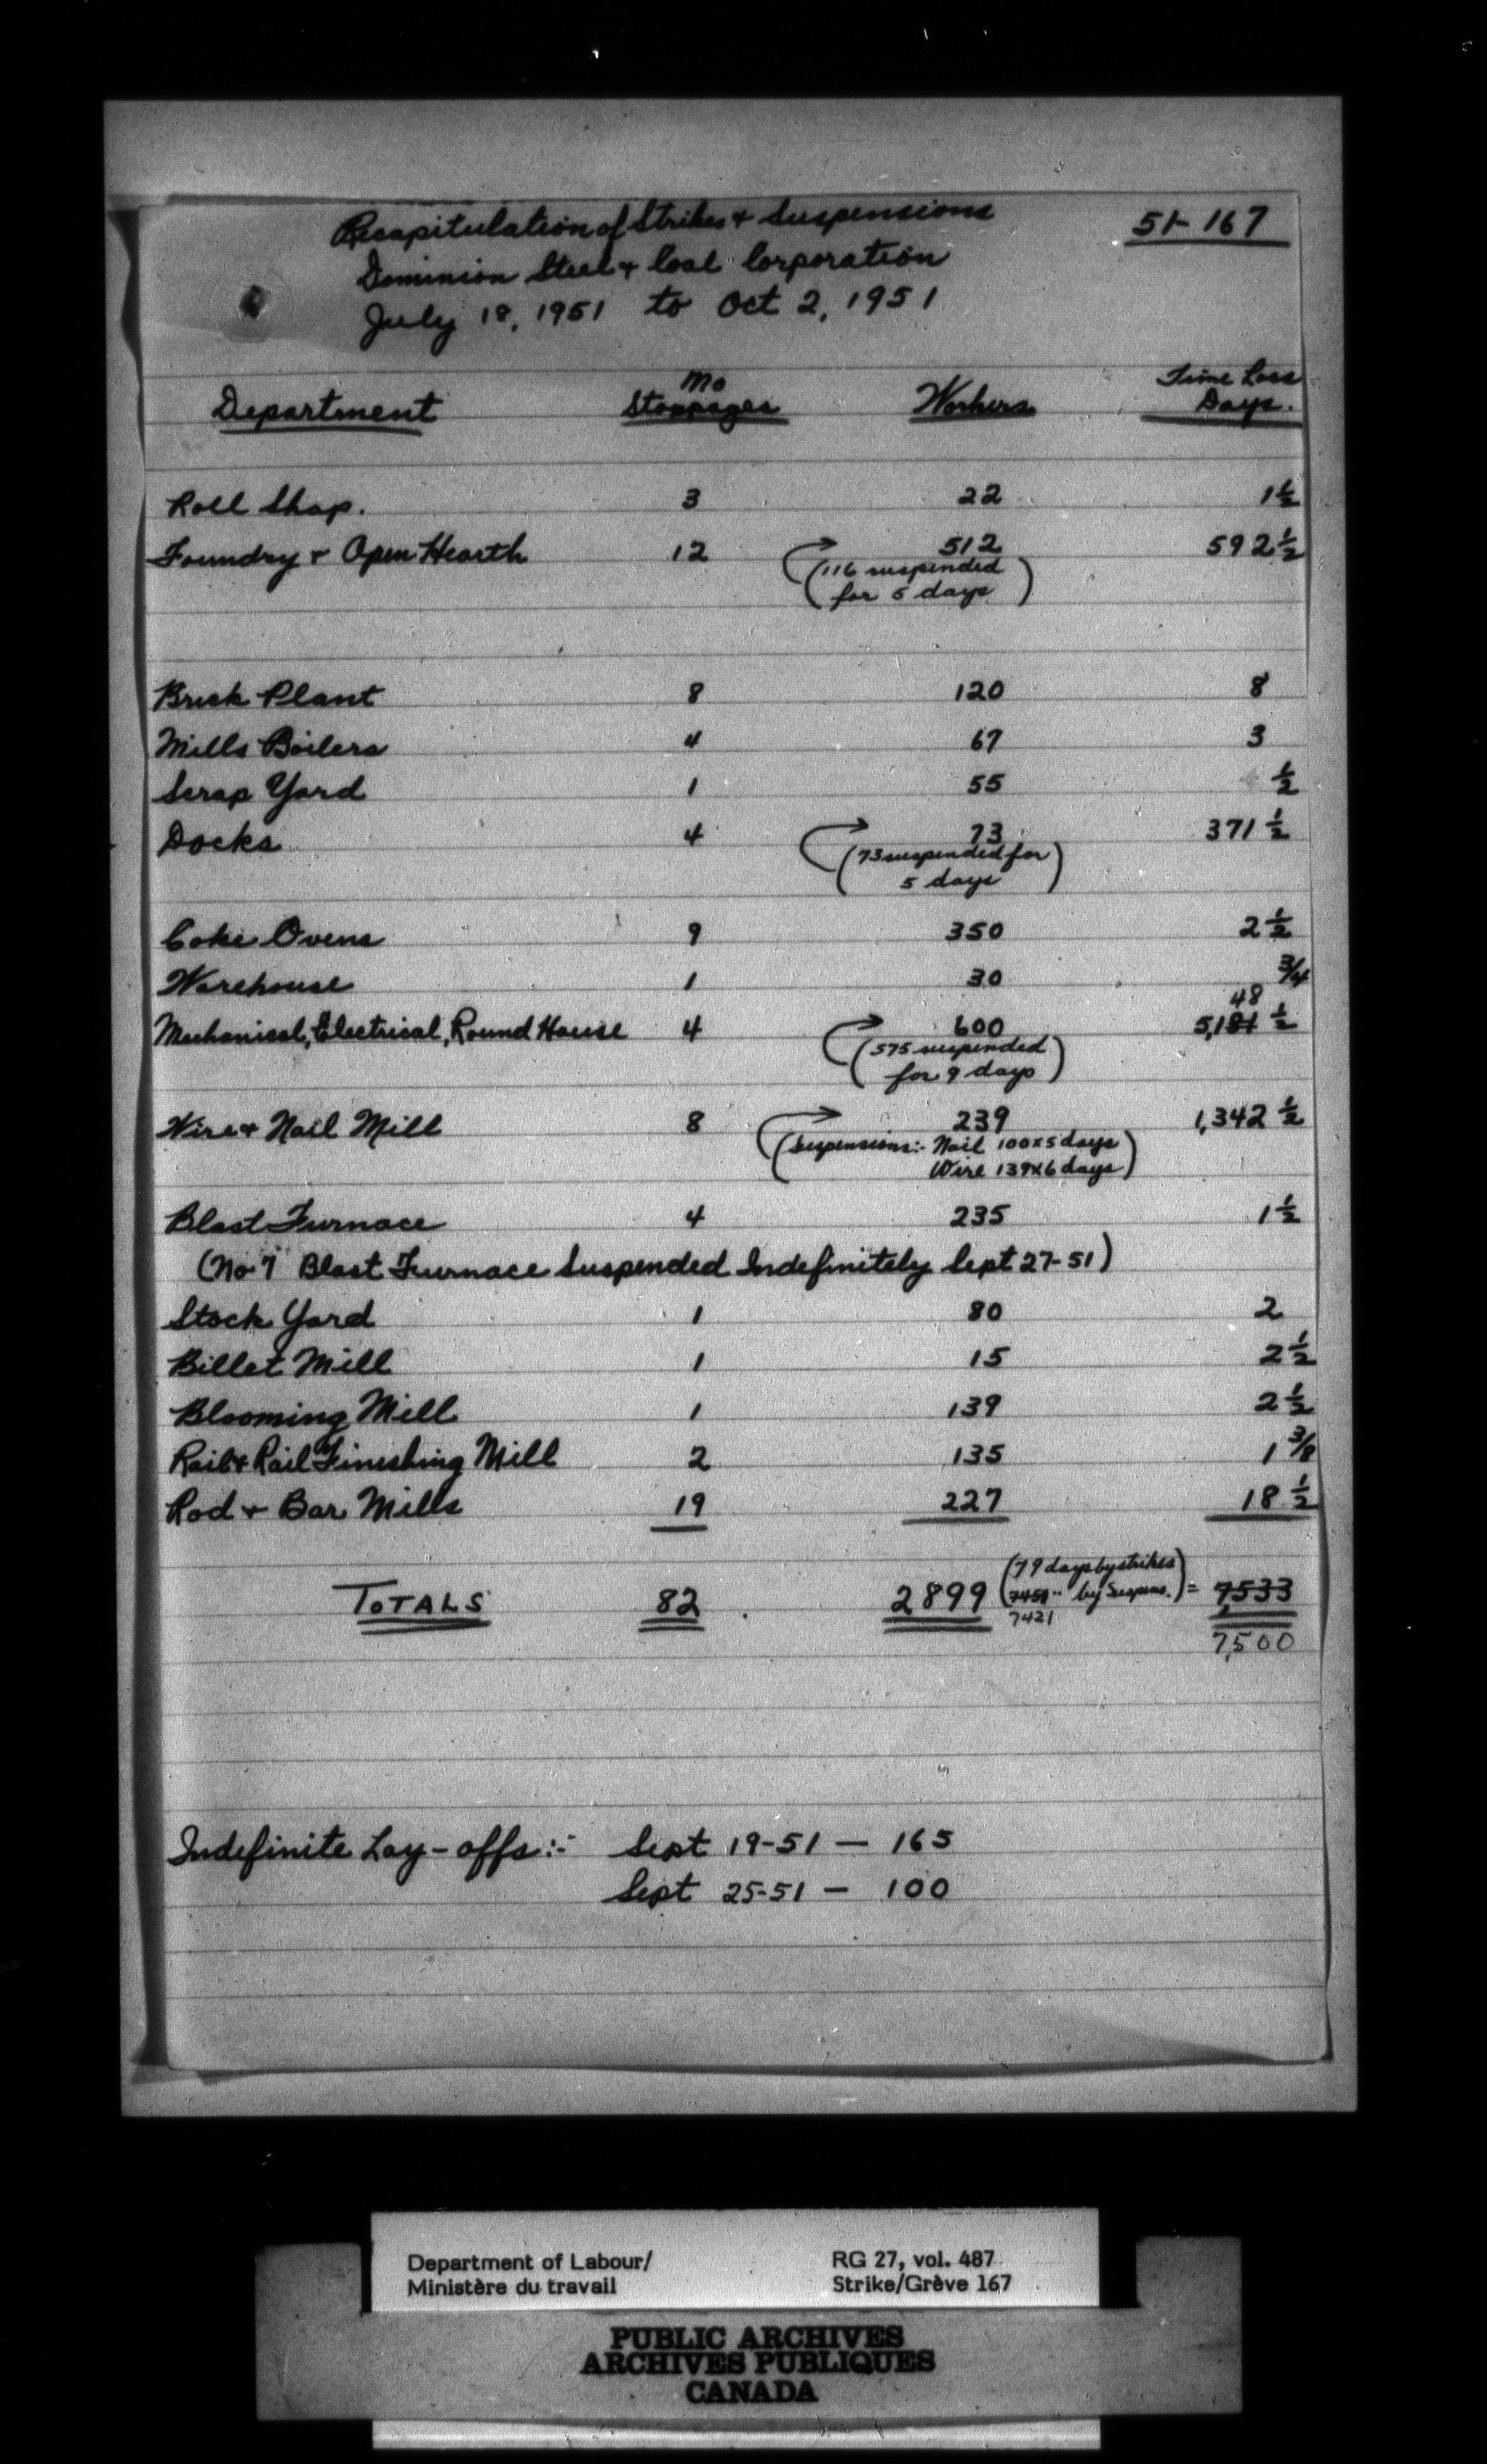 Recapitulation of Strikes + Suspensions 51-167
Dominion Steel + Coal Corporation
July 18, 1951 to Oct 2, 1951
Department No Stoppages Workers Time Loss Days.
Roll Shop. 3 22 1 1/2
Foundry + Open Hearth 12 512 592 1/2
(116 suspended
for 5 days)
Brick Plant 8 120 8
Mills Boilers 4 67 3
Scrap Yard 1 55 1/2
Docks 4 73 371 1/2
(73 suspended for
5 days)
Coke Ovens 9 350 2 1/2
Warehouse 1 30 3/4
48
Mechanical, Electrical, Round House 4 600 5,181 1/2
(575 suspended
for 9 days)
Wire + Nail Mill 8 239 1,342 1/2
(Suspensions:- Nail 100x5 days
Wire 139x6 days)
Blast Furnace 4 235 1 1/2
(No 7 Blast Furnace Suspended Indefinitely Sept 27-51)
Stock Yard 1 80 2
Billet Mill 1 15 2 1/2
Blooming Mill 1 139 2 1/2
Rail + Rail Finishing Mill 2 135 1 3/8
Rod + Bar Mills 19 227 18 1/2
(79 days by strikes
TOTALS 82 2899 7454 " by Suspens.) = 7,533
7421
7,500
Indefinite Lay-offs:- Sept 19-51 — 165
Sept 25-51 — 100
Department of Labour/ RG 27, vol. 487
Ministère du travail Strike/Grève 167
PUBLIC ARCHIVES
ARCHIVES PUBLIQUES
CANADA